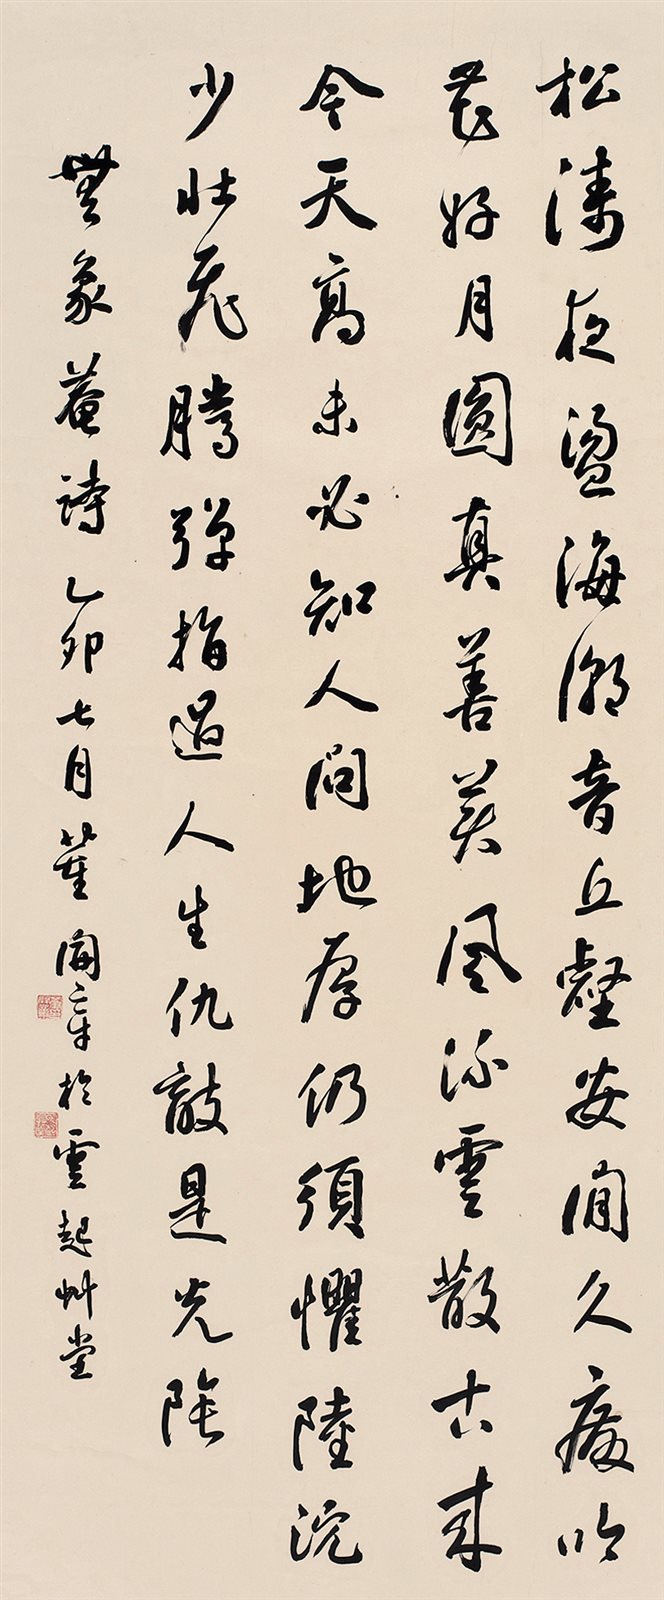 松濤夜盪海潮音丘壑安閒久廢吟
花好月圓真善美風流雲散古來
今天高未必知人問地厚仍須懼陸沉
少壯飛騰彈指過人生仇敵是光陰
無象菴詩乙卯七月董開章於雲起艸堂